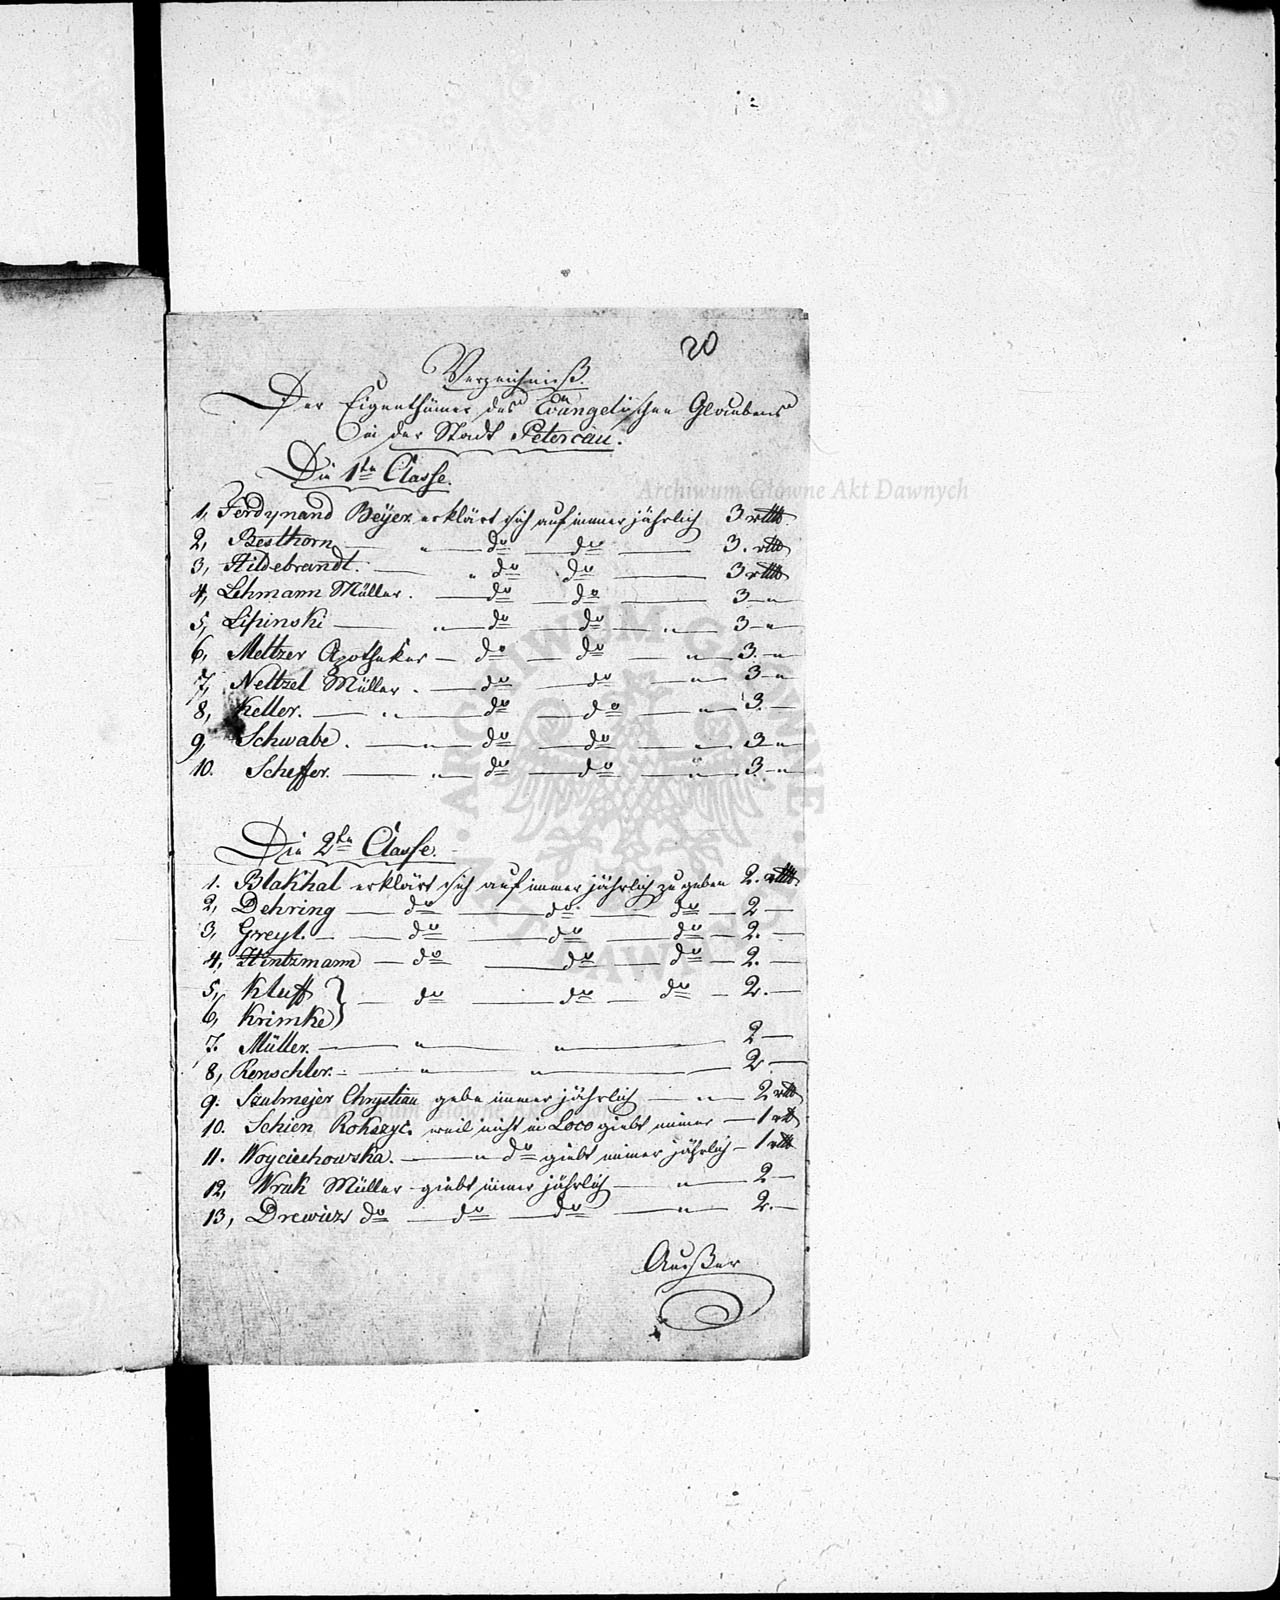 20
Verzeichniß.
Der Eigenthümer des Evangelischen Glaubens
in der Stadt Petercau.
Die 1te Classe.
Archiwum Główne Akt Dawnych
1, Ferdynand Beÿer erklärt sich auf immer jährlich 3 rtlr
2, Besthorn — " — do — do — 3. rtlr
3, Hildebrandt. — " do do — 3 rtlr
4, Lehmann Müller. — do — do — 3 — "
5, Lipinski — " — do — do — " — 3 — "
6, Meltzer Apotheker — do — do — " — 3. — "
7, Neltzel Müller. — do — do — " — 3 — "
8, Keller. — " — do — do — " — 3. —
9, Schwabe. — " — do — do — " — 3 — "
10. Scheffer. — " — do — do — " — 3. — "
Die 2te Classe.
1. Blakhal erklärt sich auf immer jährlich zu geben 2. rtlr
2, Dehring — do — do — do — 2 —
3, Greyl. — do — do — do — 2. —
4, Hintzmann — do — do — do — 2. —
5, Kluff } — do — do — do — 2. —
6, Krimke }
7. Müller. — " — " — 2 —
8, Renschler. — " — " — 2 —
9. Szulmejer Chrystian gebe immer jährlich — " — 2 rtlr
Archiwum Główne Akt Dawnych
10. Schien Rokszyc. weil nicht in Loco giebt immer — 1 rtlr
11. Woyciechowska. — " do giebt immer jährlich — 1 rtlr
12, Wrak Müller giebt immer jährlich — " — 2 —
13, Drewicz do — do — do — " — 2. —
Außer
ARCHIWUM GŁÓWNE AKT DAWNYCH